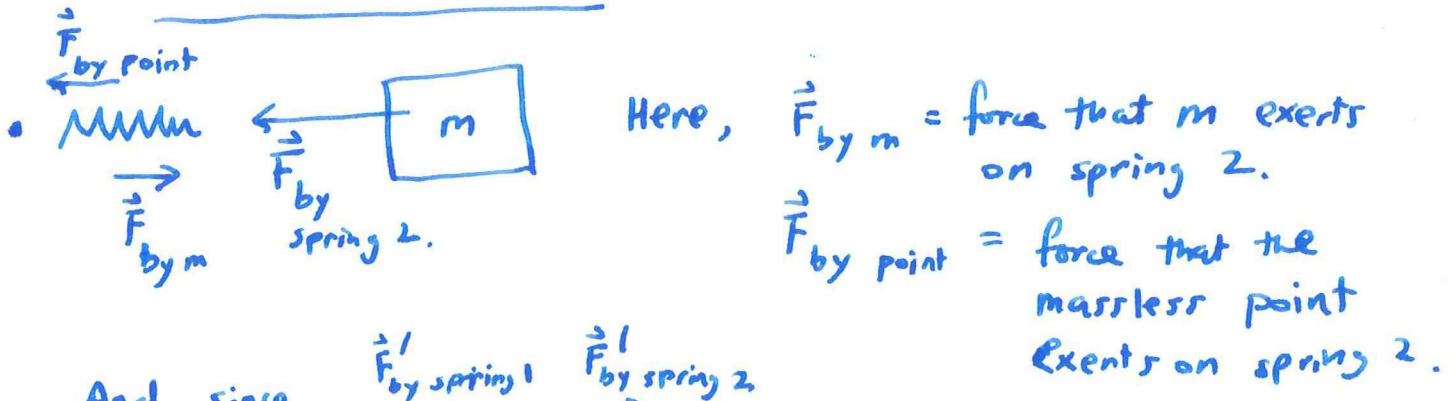 F⃗ by point
m
F⃗ by m
F⃗ by spring 2.
Here, F⃗ by m = force that m exerts
on spring 2.
F⃗ by point = force that the
massless point
exerts on spring 2.
And since F⃗' by spring 1 F⃗' by spring 2